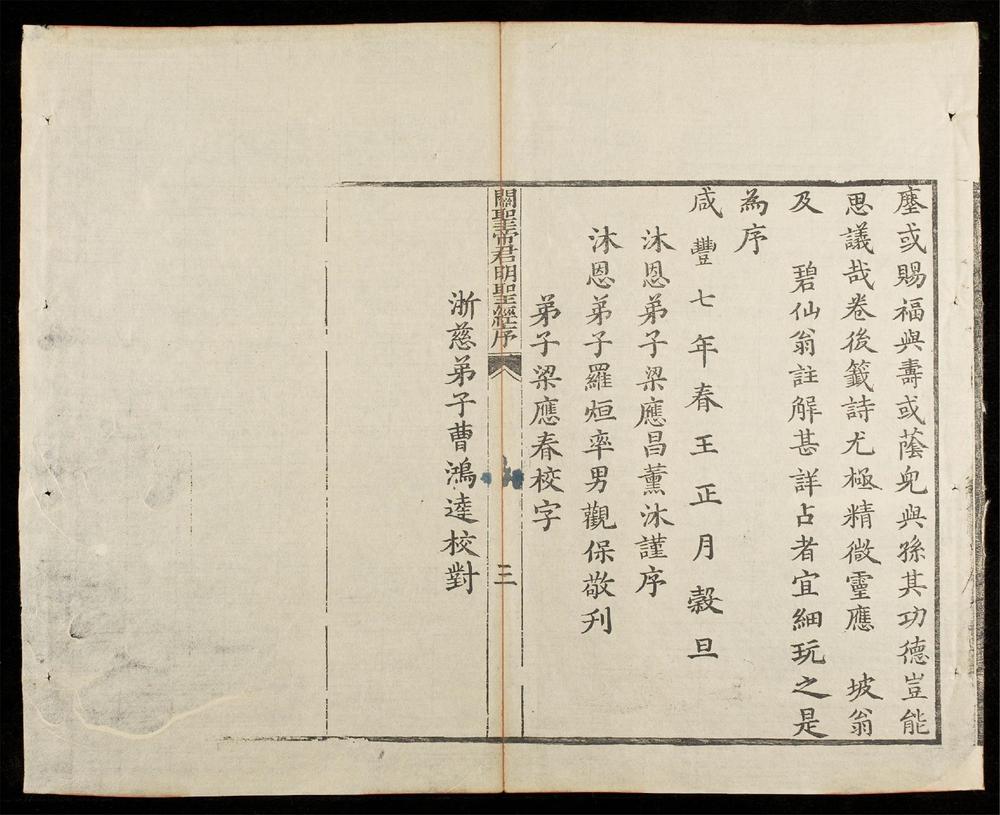 塵或賜福與壽或蔭兒與孫其功德豈能
思議哉卷後籤詩尤極精微靈應　坡翁
及　碧仙翁註解甚詳占者宜細玩之是
為序
咸豐七年春王正月穀旦
沐恩弟子梁應昌薰沐謹序
沐恩弟子羅烜率男觀保敬刋
弟子梁應春校字
關聖帝君明聖經序
三
浙慈弟子曹鴻達校對